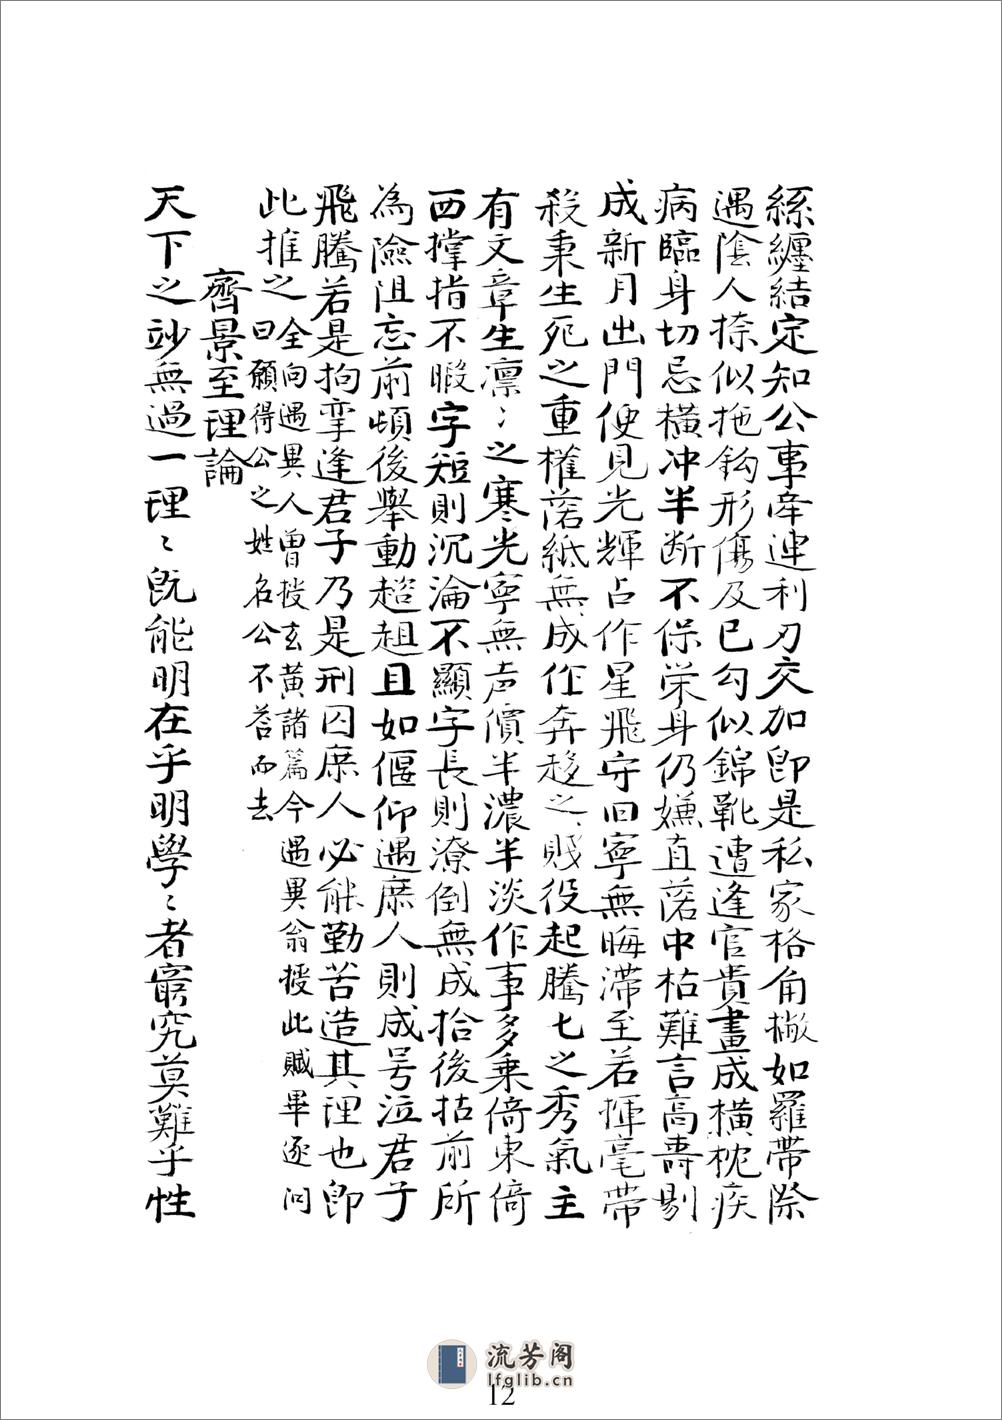 絲纏結定知公事牽連利刃交加卽是私家格角撇如羅帶際
遇陰人捺似拖鈎形傷及已勾似錦靴遭逢官貴畫成橫枕疾
病臨身切忌橫冲半断不保荣身仍嫌直落中枯難言高壽剔
成新月出門便見光輝占作星飛守旧寧無晦滯至若揮毫带
殺秉生死之重權落紙無成作奔趍之賎役起騰七之秀氣主
有文章生凛〻之寒光寧無声價半濃半淡作事多乘倚東倚
西撑指不暇字短則沉淪不顯字長則潦倒無成拾後拈前所
為險阻忘前頓後舉動趑趄且如偃仰遇庶人則成号泣君子
飛騰若是拘挛逢君子乃是刑囚庶人必能勤苦造其理也卽
此推之全向遇異人曽授玄黄諸篇今遇異翁授此賦畢逐问
曰願得公之姓名公不荅而去
齊景至理論
天下之妙無過一理〻旣能明在乎明學〻者窮究莫難乎性
流芳阁
lfglib.cn
12